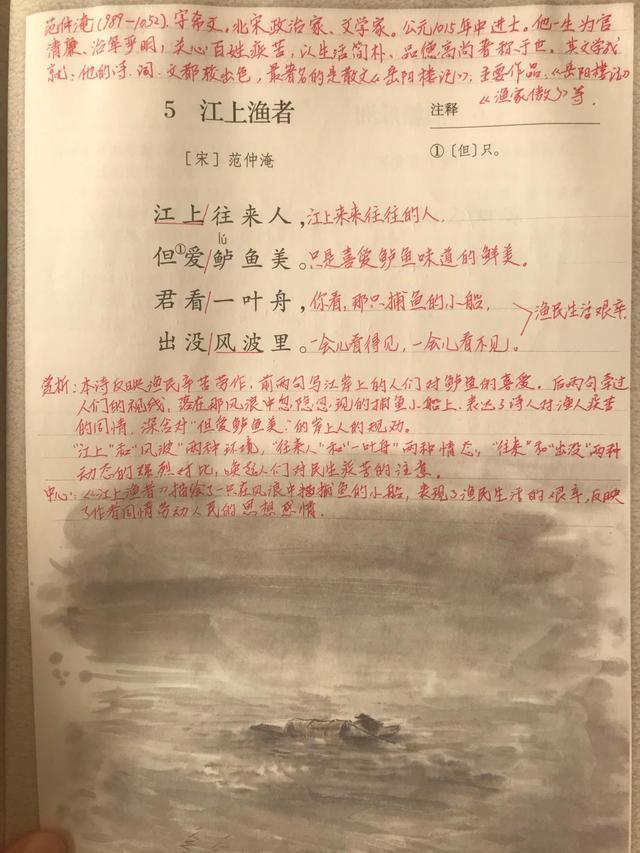 范仲淹(989-1052),字希文。北宋政治家、文学家。公元1015年中进士。他一生为官
清廉、治军严明,关心百姓疾苦,以生活简朴、品德高尚著称于世。其文学成
就:他的诗、词、文都较出色,最著名的是散文《岳阳楼记》,主要作品:《岳阳楼记》
《渔家傲》等.
5 江上渔者
注释
[宋]范仲淹
①〔但〕只。
江上/往来人,江上来来往往的人,
lú
但①爱/鲈鱼美。只是喜爱鲈鱼味道的鲜美。
君看/一叶舟,你看,那只捕鱼的小船,
渔民生活艰辛.
出没/风波里。一会儿看得见,一会儿看不见。
赏析:本诗反映渔民辛苦劳作,前两句写江岸上的人们对鲈鱼的喜爱。后两句牵过
人们的视线,落在那风浪中忽隐忽现的捕鱼小船上,表达了诗人对渔人疾苦
的同情,深含对"但爱鲈鱼美"的岸上人的规劝。
"江上"和"风波"两种环境,"往来人"和"一叶舟"两种情态,"往来"和"出没"两种
动态的强烈对比,唤起人们对民生疾苦的注意。
中心:《江上渔者》描绘了一只在风浪中捕鱼的小船,表现了渔民生活的艰辛,反映
了作者同情劳动人民的思想感情.